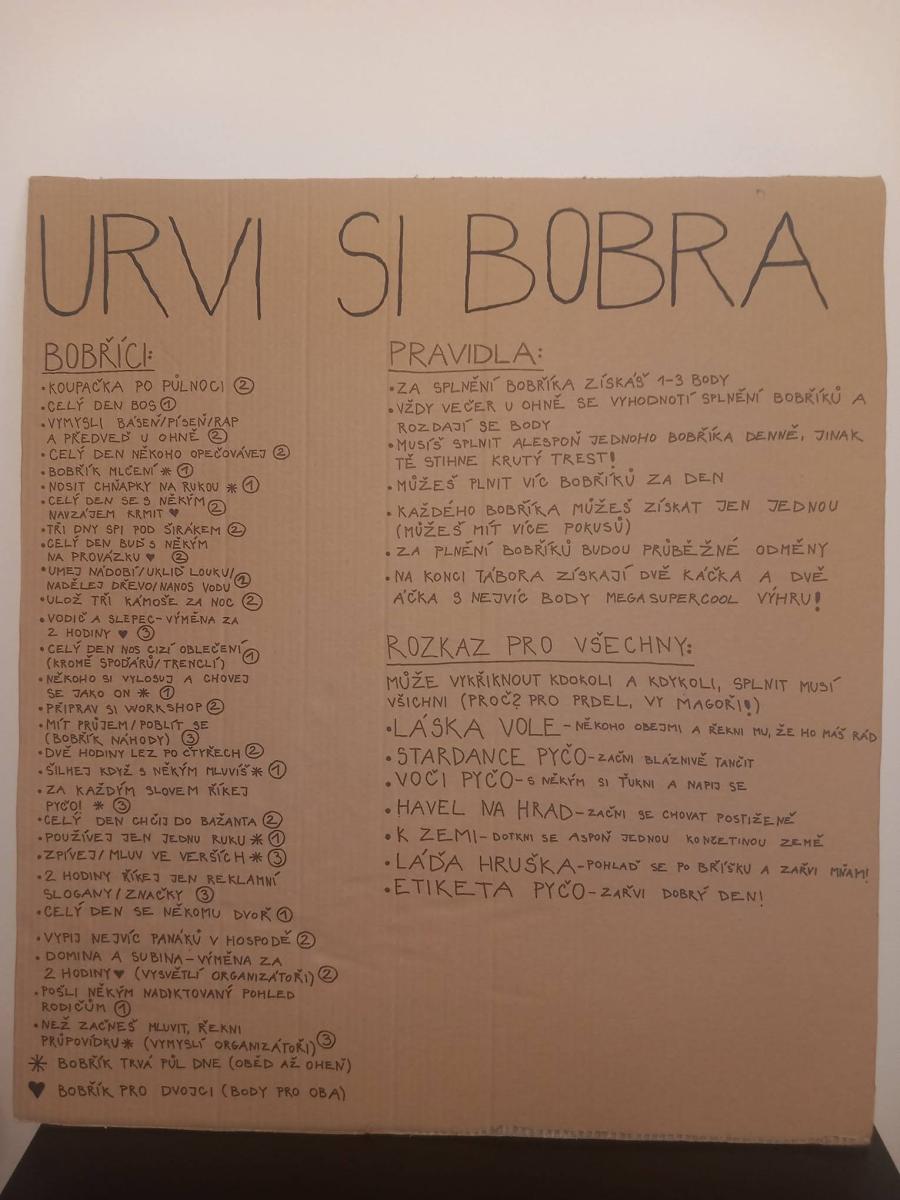 URVI SI BOBRA
BOBŘÍCI:
•KOUPAČKA PO PŮLNOCI 2
•CELÝ DEN BOS 1
•VYMYSLI BÁSEŇ/PÍSEŇ/RAP
A PŘEDVEĎ U OHNĚ 2
•CELÝ DEN NĚKOHO OPEČOVÁVEJ 2
•BOBŘÍK MLČENÍ * 1
•NOSIT CHŇAPKY NA RUKOU * 1
•CELÝ DEN SE S NĚKÝM
NAVZÁJEM KRMIT ♥ 2
•TŘI DNY SPI POD ŠIRÁKEM 2
•CELÝ DEN BUĎ S NĚKÝM
NA PROVÁZKU ♥ 2
•UMEJ NÁDOBÍ/UKLIĎ LOUKU/
NADĚLEJ DŘEVO/NANOS VODU 2
•ULOŽ TŘI KÁMOŠE ZA NOC 2
•VODIČ A SLEPEC-VÝMĚNA ZA
2 HODINY ♥ 3
•CELÝ DEN NOS CIZÍ OBLEČENÍ
(KROMĚ SPOĎÁRŮ/TRENCLÍ) 1
•NĚKOHO SI VYLOSUJ A CHOVEJ
SE JAKO ON * 1
•PŘIPRAV SI WORKSHOP 2
•MÍT PRŮJEM/POBLÍT SE
(BOBŘÍK NÁHODY) 3
•DVĚ HODINY LEZ PO ČTYŘECH 2
•ŠILHEJ KDYŽ S NĚKÝM MLUVÍŠ * 1
•ZA KAŽDÝM SLOVEM ŘÍKEJ
PYČO! * 3
•CELÝ DEN CHČIJ DO BAŽANTA 2
•POUŽÍVEJ JEN JEDNU RUKU * 1
•ZPÍVEJ/MLUV VE VERŠÍCH * 3
•2 HODINY ŘÍKEJ JEN REKLAMNÍ
SLOGANY/ZNAČKY 3
•CELÝ DEN SE NĚKOMU DVOŘ 1
•VYPIJ NEJVÍC PANÁKŮ V HOSPODĚ 2
•DOMINA A SUBINA-VÝMĚNA ZA
2 HODINY ♥ (VYSVĚTLÍ ORGANIZÁTOŘI) 2
•POŠLI NĚKÝM NADIKTOVANÝ POHLED
RODIČŮM 1
•NEŽ ZAČNEŠ MLUVIT, ŘEKNI
PRŮPOVÍDKU * (VYMYSLÍ ORGANIZÁTOŘI) 3
* BOBŘÍK TRVÁ PŮL DNE (OBĚD AŽ OHEŇ)
♥ BOBŘÍK PRO DVOJCI (BODY PRO OBA)
PRAVIDLA:
•ZA SPLNĚNÍ BOBŘÍKA ZÍSKÁŠ 1-3 BODY
•VŽDY VEČER U OHNĚ SE VYHODNOTÍ SPLNĚNÍ BOBŘÍKŮ A
ROZDAJÍ SE BODY
•MUSÍŠ SPLNIT ALESPOŇ JEDNOHO BOBŘÍKA DENNĚ, JINAK
TĚ STIHNE KRUTÝ TREST!
•MŮŽEŠ PLNIT VÍC BOBŘÍKŮ ZA DEN
•KAŽDÉHO BOBŘÍKA MŮŽEŠ ZÍSKAT JEN JEDNOU
(MŮŽEŠ MÍT VÍCE POKUSŮ)
•ZA PLNĚNÍ BOBŘÍKŮ BUDOU PRŮBĚŽNÉ ODMĚNY
•NA KONCI TÁBORA ZÍSKAJÍ DVĚ KÁČKA A DVĚ
ÁČKA S NEJVÍC BODY MEGASUPERCOOL VÝHRU!
ROZKAZ PRO VŠECHNY:
MŮŽE VYKŘIKNOUT KDOKOLI A KDYKOLI, SPLNIT MUSÍ
VŠICHNI (PROČ? PRO PRDEL, VY MAGOŘI!)
•LÁSKA VOLE-NĚKOHO OBEJMI A ŘEKNI MU, ŽE HO MÁŠ RÁD
•STARDANCE PYČO-ZAČNI BLÁZNIVĚ TANČIT
•VOČI PYČO-S NĚKÝM SI ŤUKNI A NAPIJ SE
•HAVEL NA HRAD-ZAČNI SE CHOVAT POSTIŽENĚ
•K ZEMI-DOTKNI SE ASPOŇ JEDNOU KONČETINOU ZEMĚ
•LÁĎA HRUŠKA-POHLAĎ SE PO BŘÍŠKU A ZAŘVI MŇAM!
•ETIKETA PYČO-ZAŘVI DOBRÝ DEN!